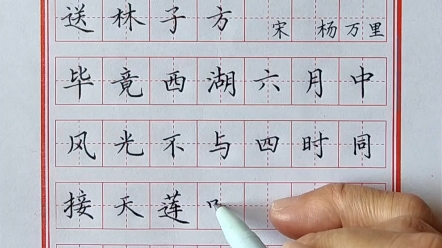 送林子方 宋 杨万里
毕竟西湖六月中
风光不与四时同
接天莲